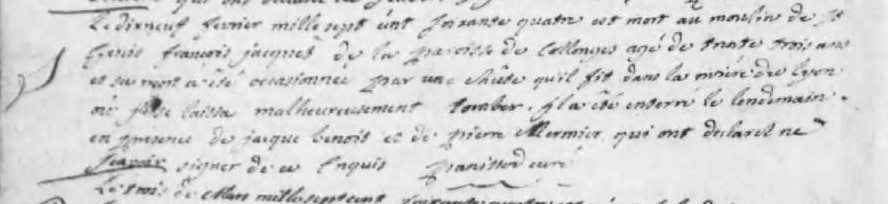 qui ont déclaré ne
Le dixneuf fevrier mille sept cent soixante quatre est mort au moulin de st
Genis francois jacques de la paroisse de Collonges agé de trente trois ans
et sa mort a été occasionnee par une chûte qu'il fit dans la riviére du lyon
où il se laissa malheureusement tomber. il a été enterré le lendemain.
en présence de jacque benoit et de pierre Mermier qui ont declaré ne
scavoir signer de ce Enquis panissod curé
Le trois de Mars mille sept cent soixante quatre est